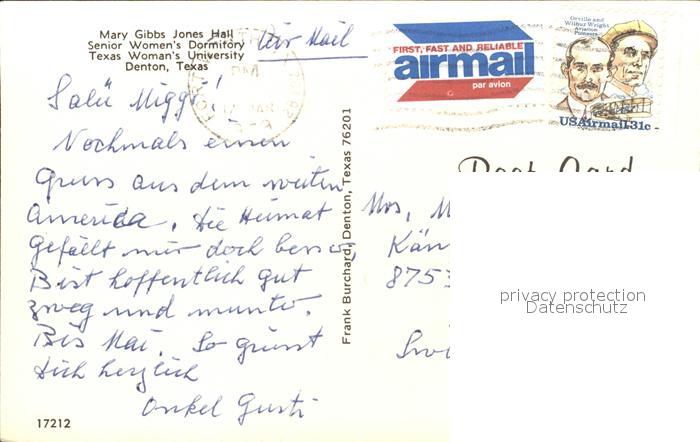 Mary Gibbs Jones Hall
Senior Women's Dormitory
Texas Woman's University
Denton, Texas
Air Mail
FIRST, FAST AND RELIABLE
airmail
par avion
Orville and
Wilbur Wright
Aviation
Pioneers
USAirmail 31c
PM
Salü Miggi!
Nochmals einen
Gruss aus dem weiten
America. Die Heimat
gefällt mir doch besser,
Bist hoffentlich gut
zweg und munter.
Bis Mai. So grüsst
Dich herzlich
Onkel Gusti
17212
Frank Burchard, Denton, Texas 76201
Post Card
Mrs, M
Kän
8753
privacy protection
Datenschutz